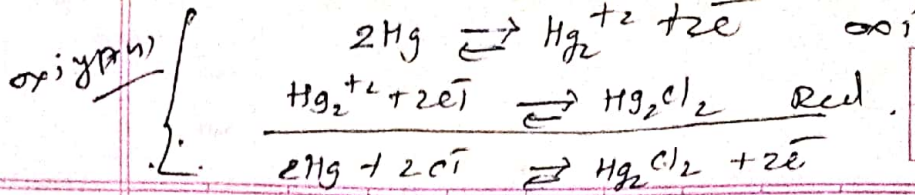 2Hg ⇌ Hg₂⁺² + 2e⁻ oxi
Hg₂⁺² + 2cl⁻ ⇌ Hg₂Cl₂ Red.
2Hg + 2cl⁻ ⇌ Hg₂Cl₂ + 2e⁻